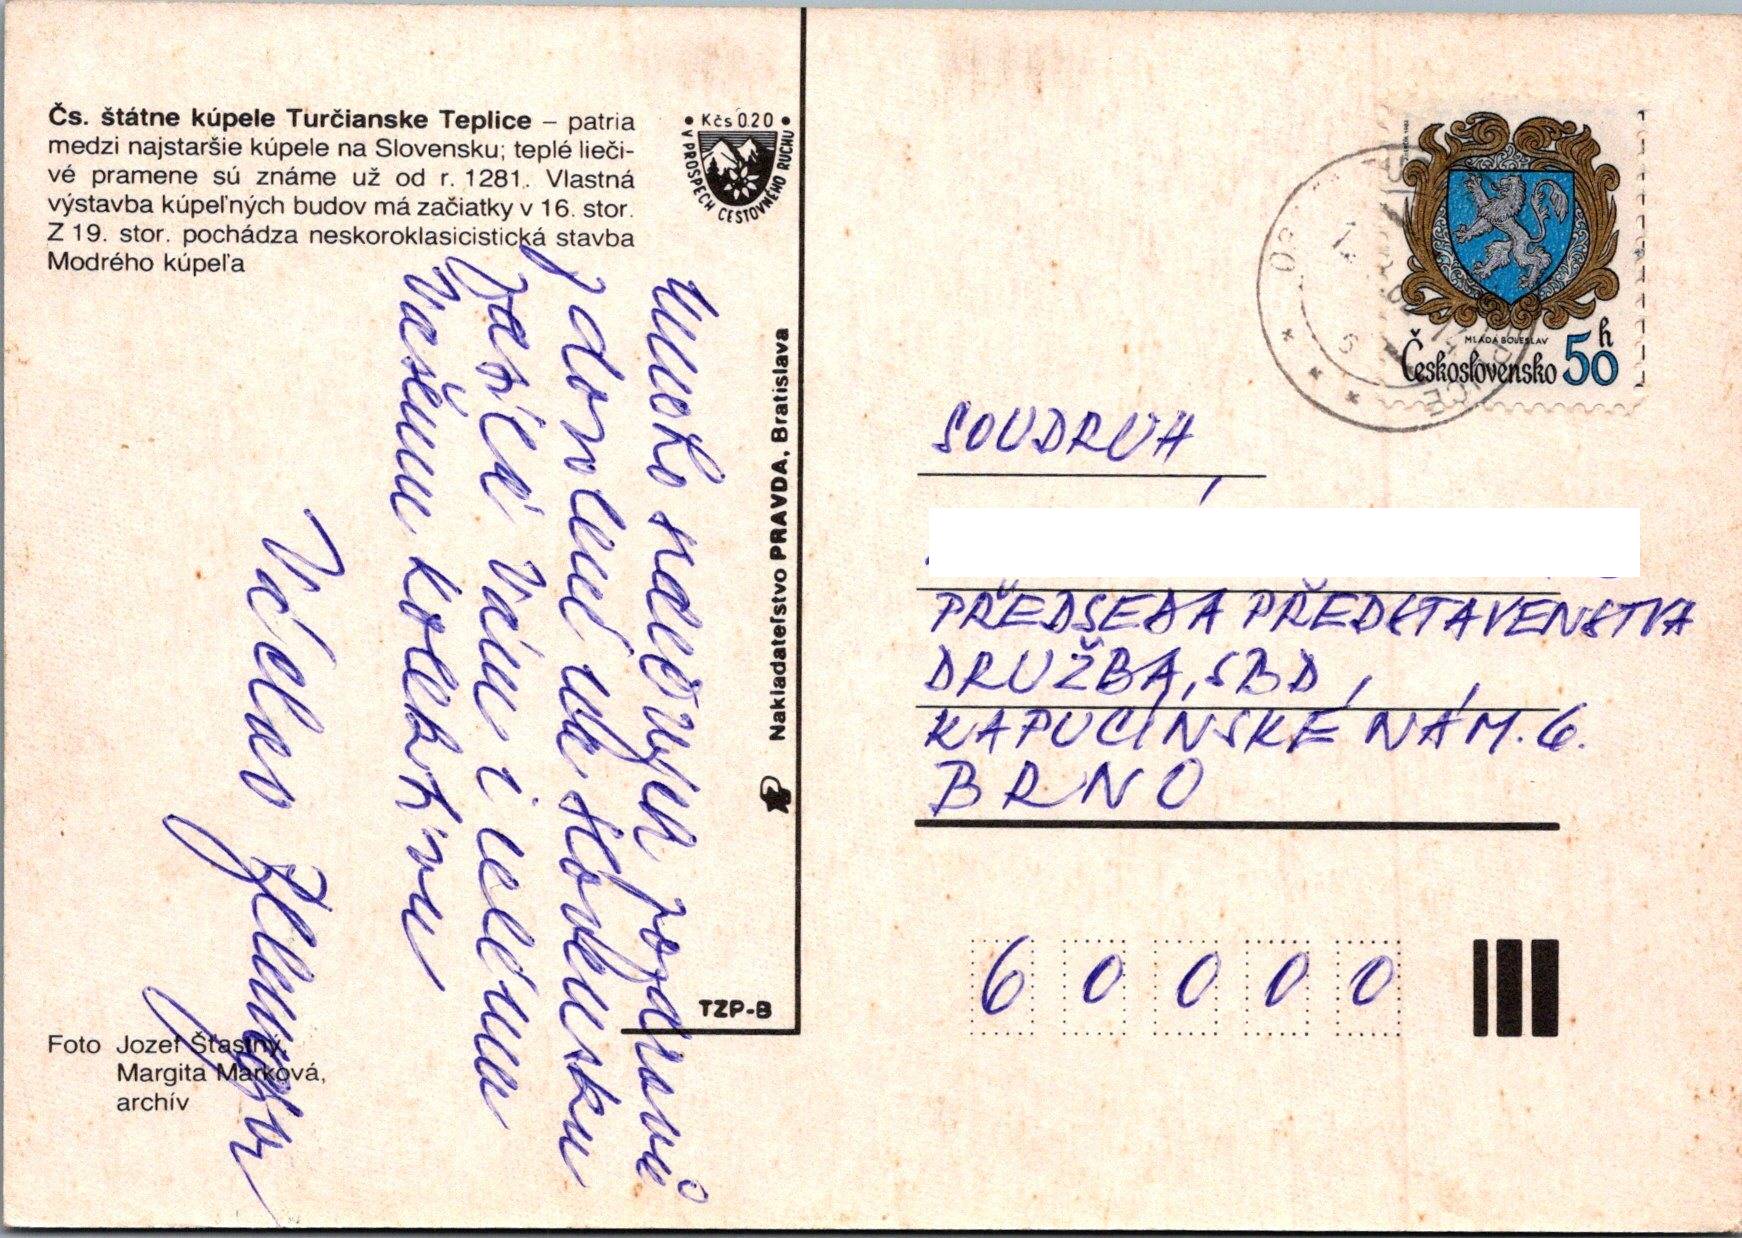 Čs. štátne kúpele Turčianske Teplice – patria
medzi najstaršie kúpele na Slovensku; teplé lieči-
vé pramene sú známe už od r. 1281. Vlastná
výstavba kúpeľných budov má začiatky v 16. stor.
Z 19. stor. pochádza neskoroklasicistická stavba
Modrého kúpeľa
• Kčs 0.20 •
V PROSPECH CESTOVNÉHO RUCHU
Mnoho srdečných pozdravů
z dovolené na Slovensku
zasílá Vám i celému
Vašemu kolektivu
Václav
Nakladateľstvo PRAVDA, Bratislava
TZP-B
Foto Jozef Šťastný,
Margita Marková,
archív
MLADÁ BOLESLAV
Československo 50 h
SOUDRUH,
PŘEDSEDA PŘEDSTAVENSTVA
DRUŽBA, SBD,
KAPUCÍNSKÉ NÁM. 6.
BRNO
6 0 0 0 0